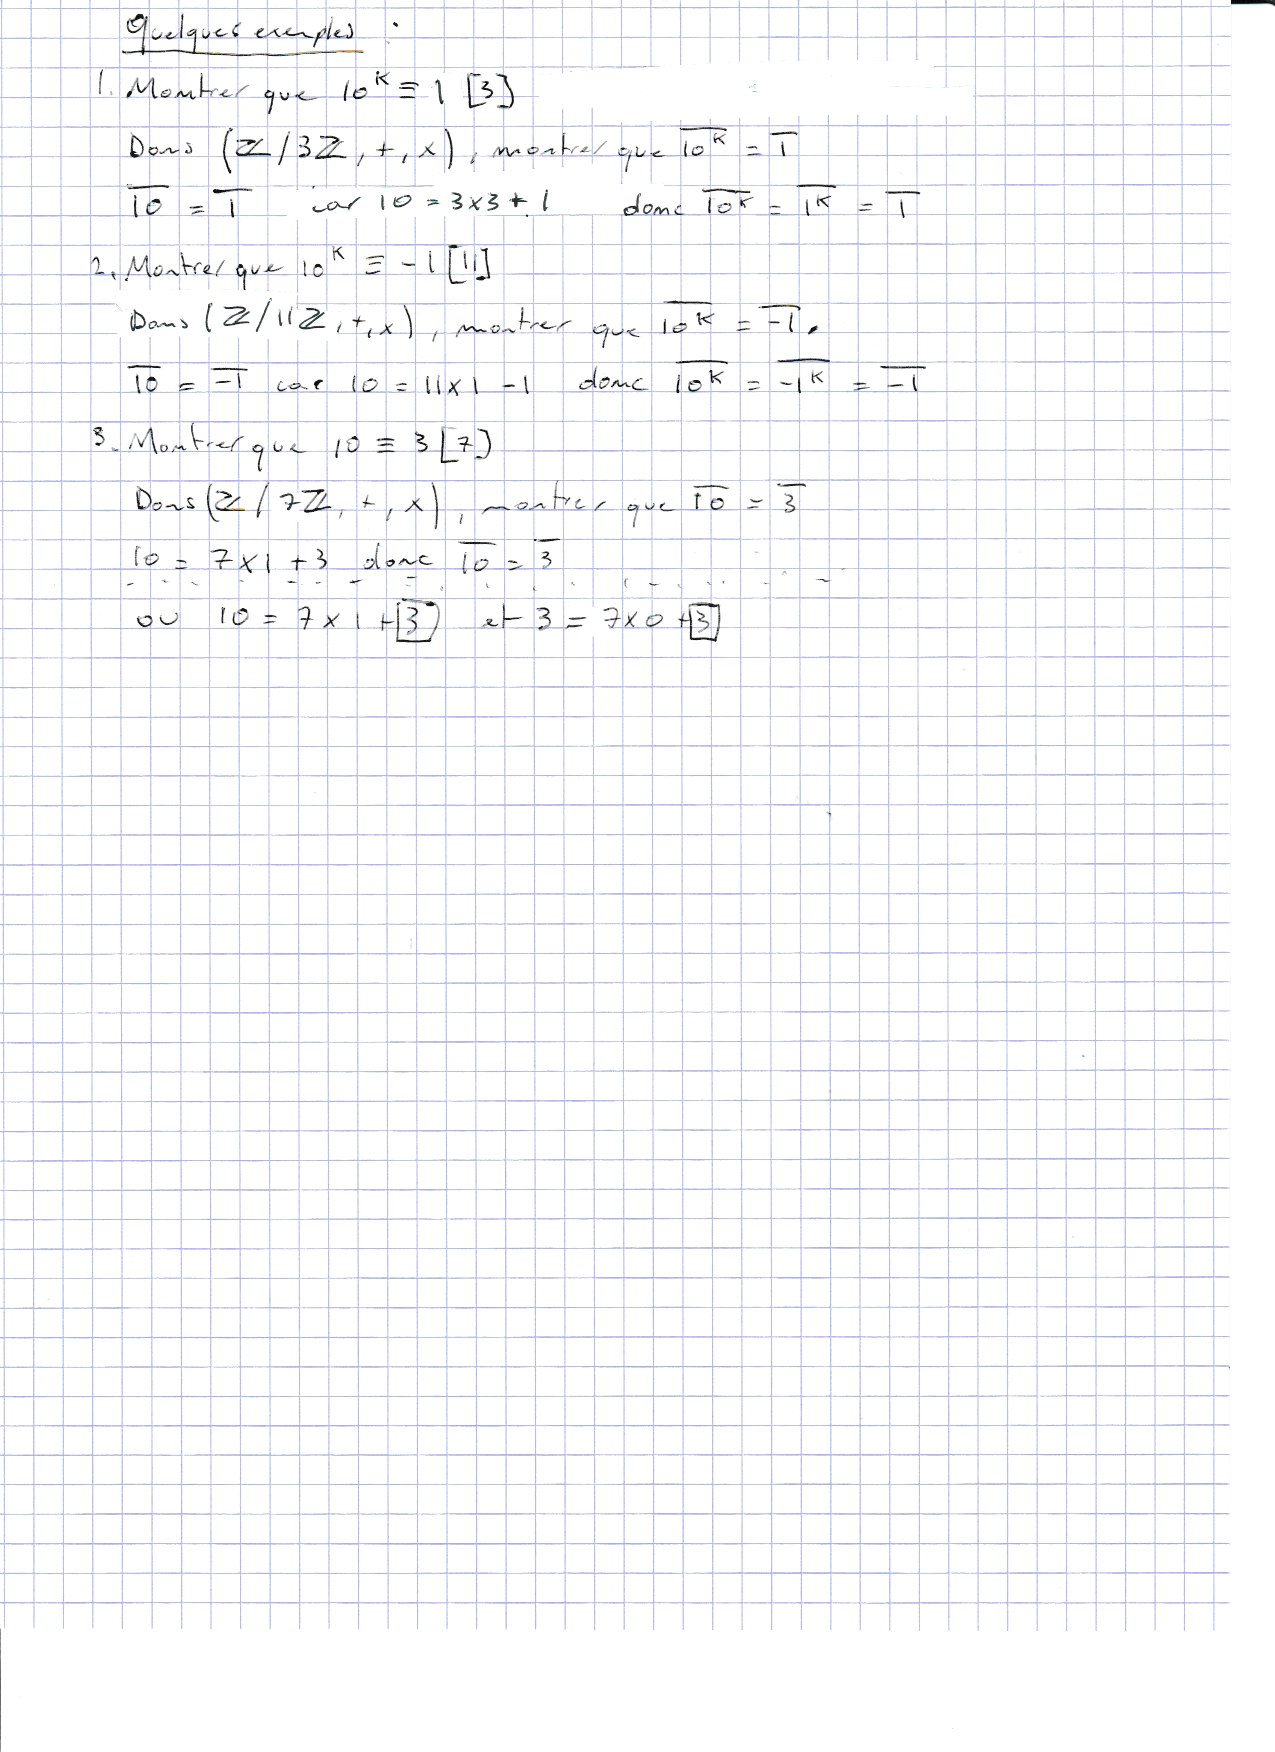 Quelques exemples :
1. Montrer que 10ᵏ ≡ 1 [3]
Dans (ℤ/3ℤ, +, ×), montrer que \overline{10ᵏ} = \overline{1}
\overline{10} = \overline{1} car 10 = 3×3+1 donc \overline{10ᵏ} = \overline{1ᵏ} = \overline{1}
2. Montrer que 10ᵏ ≡ -1 [11]
Dans (ℤ/11ℤ, +, ×), montrer que \overline{10ᵏ} = \overline{-1}.
\overline{10} = \overline{-1} car 10 = 11×1 -1 donc \overline{10ᵏ} = \overline{-1ᵏ} = \overline{-1}
3. Montrer que 10 ≡ 3 [7]
Dans (ℤ/7ℤ, +, ×), montrer que \overline{10} = \overline{3}
10 = 7×1 +3 donc \overline{10} = \overline{3}
ou 10 = 7×1+3 et 3 = 7×0+3